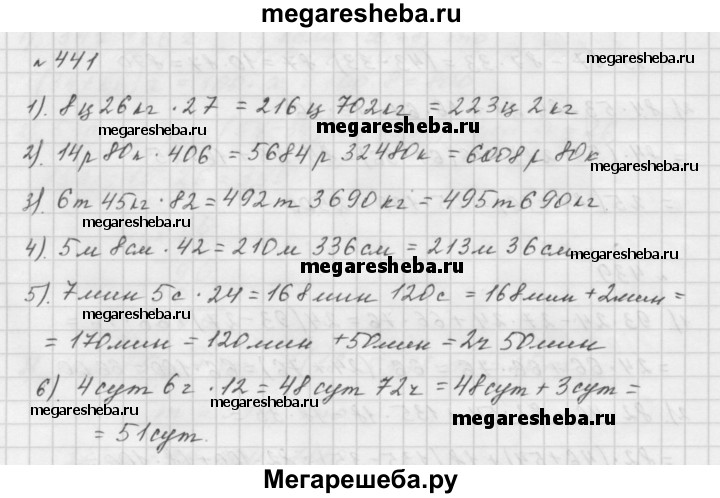 megaresheba.ru
№ 441
megaresheba.ru
1). 8ц 26кг · 27 = 216ц 702кг = 223ц 2кг
megaresheba.ru megaresheba.ru
2). 14р 80к · 406 = 5684р 32480к = 6008р 80к
megaresheba.ru
3). 6т 45кг · 82 = 492т 3690кг = 495т 690кг
megaresheba.ru
4). 5м 8см · 42 = 210м 336см = 213м 36см
megaresheba.ru megaresheba.ru
5). 7мин 5с · 24 = 168мин 120с = 168мин + 2мин =
megaresheba.ru
= 170мин = 120мин + 50мин = 2ч 50мин
megaresheba.ru
6). 4сут 6г · 12 = 48сут 72ч = 48сут + 3сут =
megaresheba.ru megaresheba.ru
= 51сут.
Мегарешеба.ру